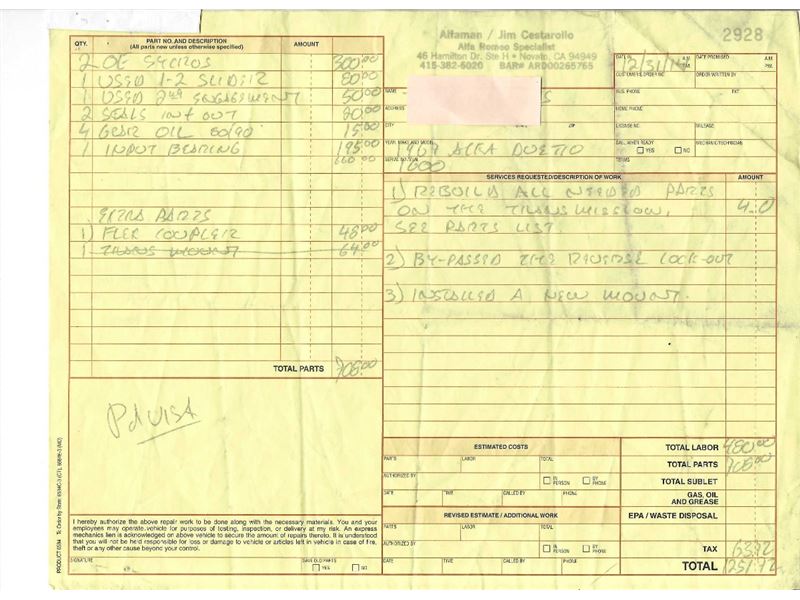 Alfaman / Jim Cestarollo
Alfa Romeo Specialist
46 Hamilton Dr. Ste H • Novato, CA 94949
415-382-6020 BAR# ARD00265765
2928
QTY. PART NO. AND DESCRIPTION AMOUNT
(All parts new unless otherwise specified)
2 OE SYCROS 300.00
1 USED 1-2 SLIDER 80.00
1 USED 2nd ENGAGEMENT 50.00
2 SEALS IN + OUT 20.00
4 GEAR OIL 80/90 15.00
1 INPUT BEARING 195.00
660.00
EXTRA PARTS
1) FLEX COUPLER 48.00
1 TRANS MOUNT 64.00
TOTAL PARTS 708.00
Pd VISA
DATE 12/31/ A.M. P.M. DATE PROMISED A.M. P.M.
CUSTOMER'S ORDER NO. ORDER WRITTEN BY
BUS. PHONE EXT.
HOME PHONE
LICENSE NO. MILEAGE
CALL WHEN READY YES NO MECHANIC/TECHNICIAN
TERMS
NAME S
ADDRESS
CITY STATE ZIP
YEAR, MAKE AND MODEL
1969 ALFA DUETTO
SERIAL NO.
1600
SERVICES REQUESTED/DESCRIPTION OF WORK AMOUNT
1) REBUILD ALL NEEDED PARTS
ON THE TRANSMISSION,
SEE PARTS LIST.
2) BY-PASSED THE REVERSE LOCK-OUT
3) INSTALLED A NEW MOUNT.
ESTIMATED COSTS
PARTS LABOR TOTAL
AUTHORIZED BY IN PERSON BY PHONE
DATE TIME CALLED BY PHONE
REVISED ESTIMATE / ADDITIONAL WORK
PARTS LABOR TOTAL
AUTHORIZED BY IN PERSON BY PHONE
DATE TIME CALLED BY PHONE
TOTAL LABOR 480.00
TOTAL PARTS 708.00
TOTAL SUBLET
GAS, OIL AND GREASE
EPA / WASTE DISPOSAL
TAX 63.72
TOTAL 1251.72
I hereby authorize the above repair work to be done along with the necessary materials. You and your
employees may operate vehicle for purposes of testing, inspection, or delivery at my risk. An express
mechanics lien is acknowledged on above vehicle to secure the amount of repairs thereto. It is understood
that you will not be held responsible for loss or damage to vehicle or articles left in vehicle in case of fire,
theft or any other cause beyond your control.
SIGNATURE SAVE OLD PARTS YES NO